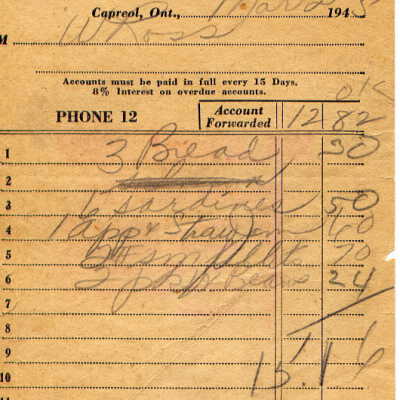 Capreol, Ont., Mar 2 1945
M W Ross
Accounts must be paid in full every 15 Days.
8% Interest on overdue accounts.
OK
PHONE 12 Account Forwarded 12 82
1 3 Bread 30
2
3 sardines 50
4 1 app & Straw 60
5 70
6 2 Beans 24
7
8
9
10 15.16